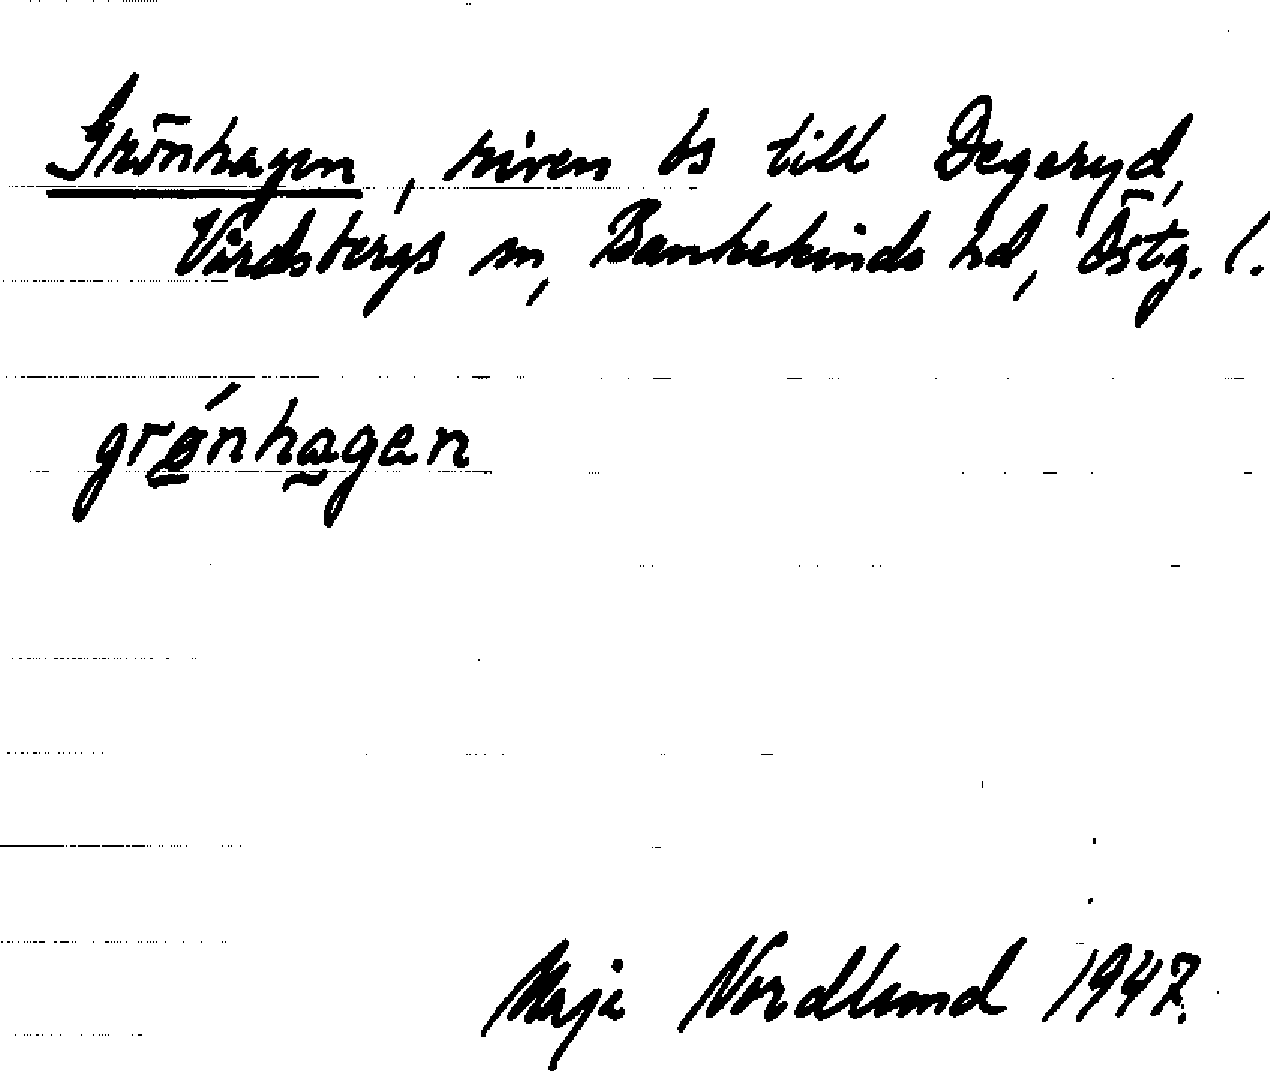 Grönhagen, riven bs till Degeryd,
Vårdsbergs sn, Bankekinds hd, Östg. l.
grǿnhagen
Maja Nordlund 1947.